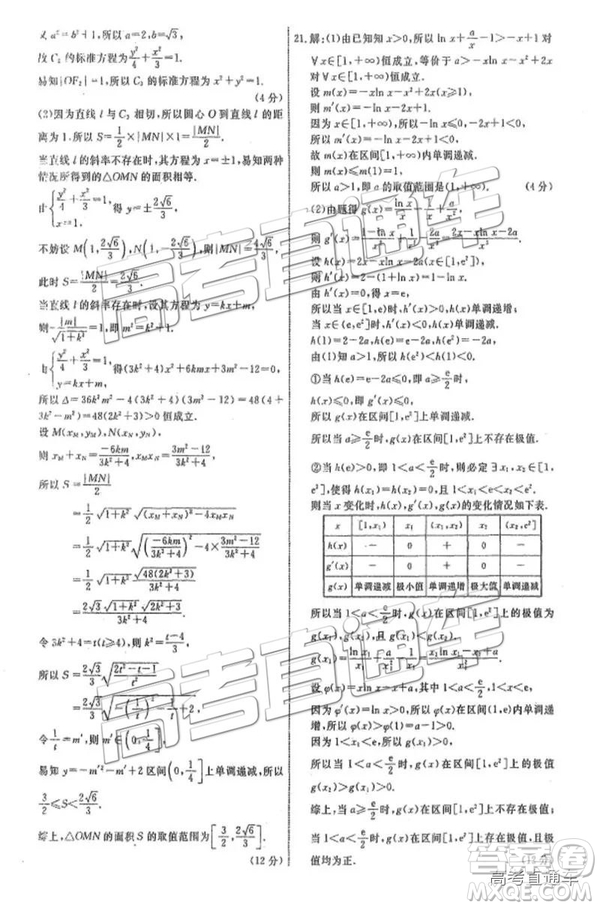 又a²=b²+1,所以a=2,b=√3.
故C₂的标准方程为y²/4+x²/3=1.
易知|OF₂|=1,所以C₃的标准方程为x²+y²=1.
(4分)
(2)因为直线l与C₃相切,所以圆心O到直线l的距
离为1.所以S=1/2×|MN|×1=|MN|/2.
当直线l的斜率不存在时,其方程为x=±1,易知两种
情况所得到的△OMN的面积相等.
由{y²/4+x²/3=1, x=1, 得y=±2√6/3.
不妨设M(1,2√6/3),N(1,-2√6/3),则|MN|=4√6/3,
此时S=|MN|/2=2√6/3.
当直线l的斜率存在时,设其方程为y=kx+m,
则|m|/√(1+k²)=1,即m²=1+k².
由{y²/4+x²/3=1, y=kx+m, 得(3k²+4)x²+6kmx+3m²-12=0,
所以Δ=36k²m²-4(3k²+4)(3m²-12)=48(4+
3k²-m²)=48(2k²+3)>0恒成立.
设M(x_M,y_M),N(x_N,y_N),
则x_M+x_N=-6km/(3k²+4),x_Mx_N=(3m²-12)/(3k²+4).
所以S=|MN|/2
=1/2 √(1+k²) √((x_M+x_N)²-4x_Mx_N)
=1/2 √(1+k²) √((-6km/(3k²+4))²-4×(3m²-12)/(3k²+4))
=1/2 √(1+k²) √(48(2k²+3))/(3k²+4)
=2√3 √(1+k²) √(2k²+3)/(3k²+4).
令3k²+4=t(t≥4),则k²=(t-4)/3,
所以S=2√3/3 √((2t²-t-1)/t²)
=2√3/3 √(-(1/t)²-1/t+2),
令1/t=m′,则m′∈(0,1/4],
易知y=-m′²-m′+2在区间(0,1/4]上单调递减,所以
3/2≤S<2√6/3.
综上,△OMN的面积S的取值范围为[3/2,2√6/3].
(12分)
21.解:(1)由已知知x>0,所以ln x+a/x-1>-x+1对
∀x∈[1,+∞)恒成立,等价于a>-xln x-x²+2x对
∀x∈[1,+∞)恒成立.
设m(x)=-xln x-x²+2x(x≥1),
则m′(x)=-ln x-2x+1.
因为x∈[1,+∞),所以-ln x≤0,-2x+1<0,
故m(x)在区间[1,+∞)内单调递减,
所以m(x)≤m(1)=1,
所以a>1,即a的取值范围是(1,+∞). (4分)
h′(x)=1-(1+ln x)=-ln x+1,
由h′(x)=0,得x=e,
所以当x∈[1,e)时,h(x)单调递增;
h(1)=2-2a,h(e)=e-2a,h(e²)=-2a,
由(1)知a>1,所以h(e²)<h(1)<0.
①当h(e)=e-2a≤0,即a≥e/2时,
h(x)≤0,即g′(x)≤0.
所以当a≥e/2时,g(x)在区间[1,e²]上不存在极值.
②当1<a<e/2时,h(e)>0,则必定∃x₁,x₂∈[1,
e²],使得h(x₁)=h(x₂)=0,且1<x₁<e<x₂<e².
则当x变化时,h(x),g′(x),g(x)的变化情况如下表.
x [1,x₁) x₁ (x₁,x₂) x₂ (x₂,e²]
h(x) - 0 + 0 -
g′(x) - 0 + 0 -
g(x) 单调递减 极小值 单调递增 极大值 单调递减
所以当1<a<e/2时,g(x)在区间[1,e²]上的极值为
设φ(x)=xln x-x+a,其中1<a<e/2,1≤x<e.
因为φ′(x)=ln x>0,所以φ(x)在区间(1,e)内单调递
增,所以φ(x)>φ(1)=a-1>0.
因为1<x₁<e,所以g(x)在区间[1,e²]上的极小值
g(x₁)>0,所以g(x₂)>g(x₁)>0.
综上,当1<a<e/2时,g(x)在区间[1,e²]上存在极值,且极
值均为正.
高考直通车
答案卷
MXQE.COM
高考直通车
高考直通车